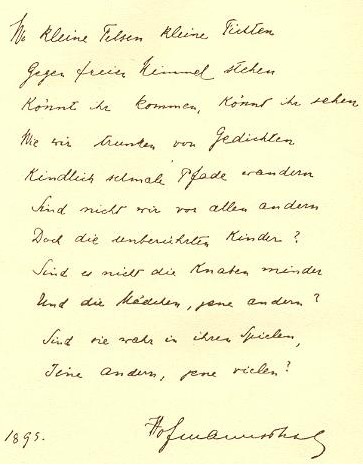 Wo kleine Felsen kleine Fichten
Gegen freien Himmel stehen
Könnt ihr kommen, könnt ihr sehen
Wie wir trunken von Gedichten
Kindlich schmale Pfade wandern
Sind nicht wir vor allen andern
Doch die unberührten Kinder?
Sind es nicht die Knaben minder
Und die Mädchen, jene andern?
Sind sie wahr in ihren Spielen,
Jene andern, jene vielen?
1895.
Hofmannsthal